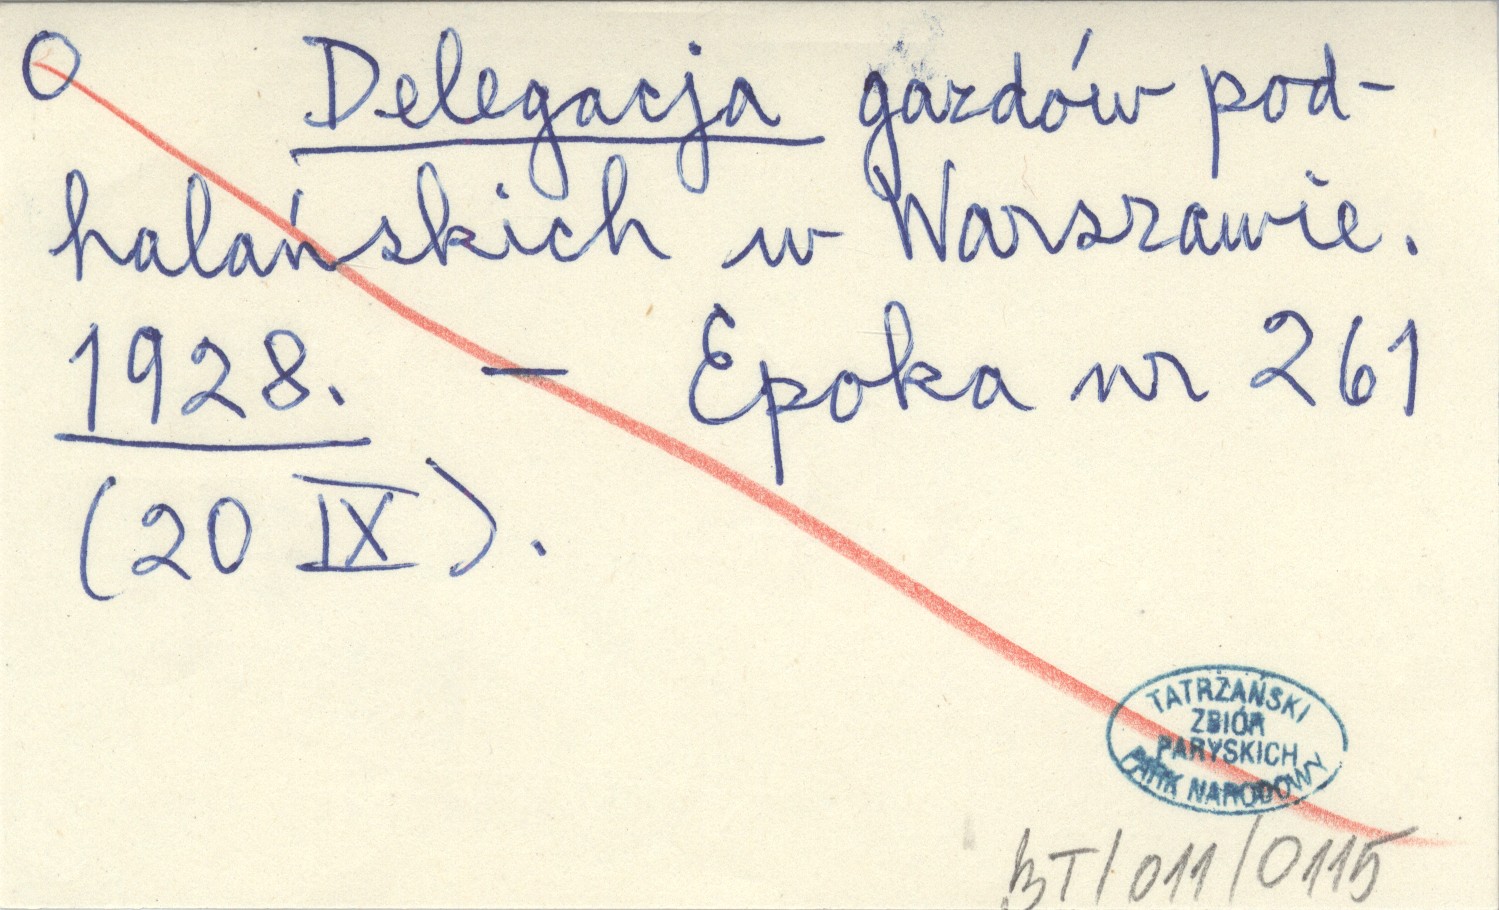 O Delegacja gazdów pod-
halańskich w Warszawie.
1928. — Epoka nr 261
(20 IX).
TATRZAŃSKI
ZBIÓR
PARYSKICH
PARK NARODOWY
BT/011/0115